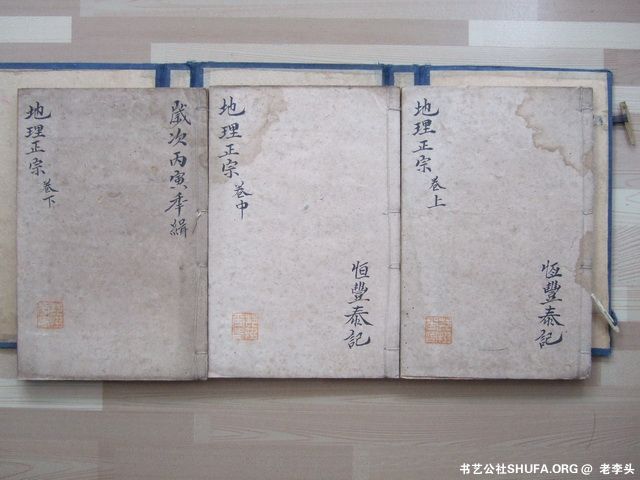 地理正宗 卷上
恆豐泰記
地理正宗 卷中
恒豐泰記
歲次丙寅年緝
地理正宗 卷下
书艺公社SHUFA.ORG @ 老李头